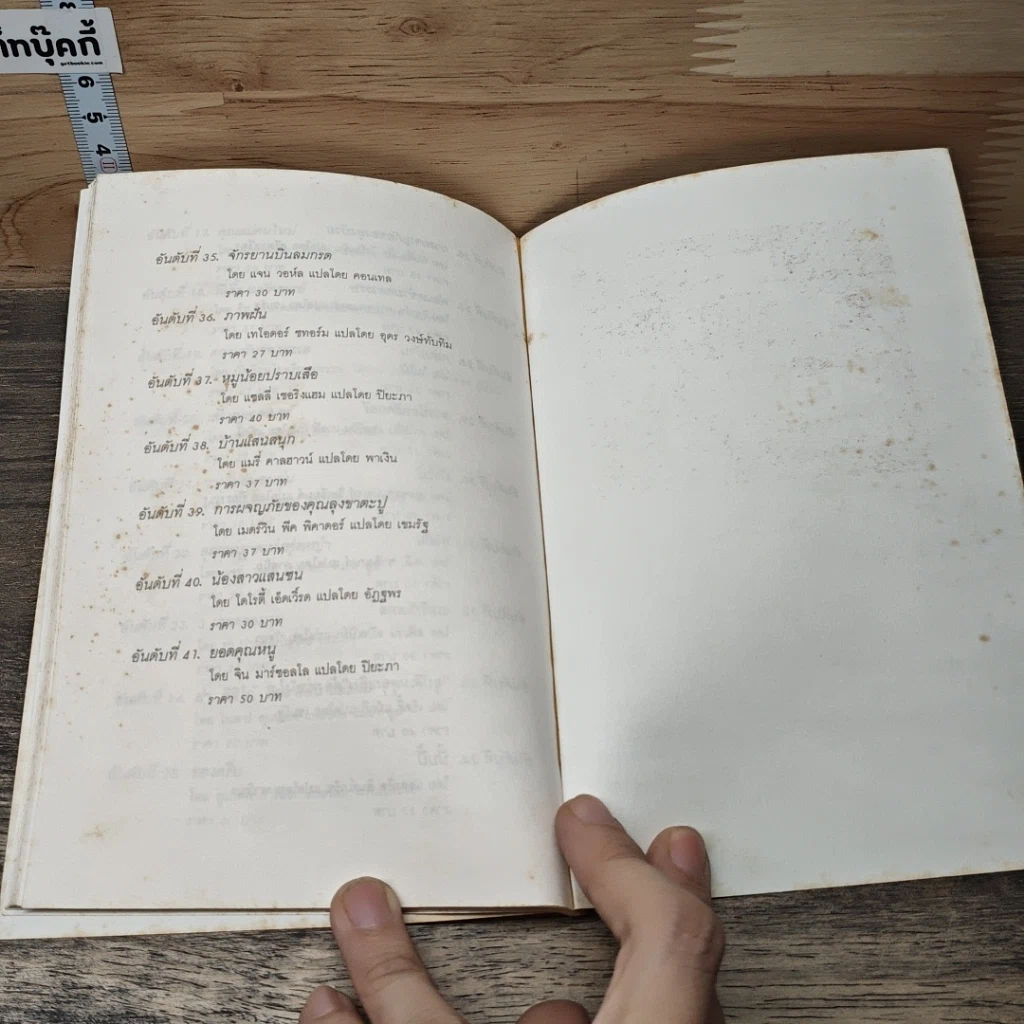 ก็ทบุ๊คกี้
getbookie.com
6
5
4
อันดับที่ 35. จักรยานบินลมกรด
โดย แจน วอห์ล แปลโดย คอนเทล
ราคา 30 บาท
อันดับที่ 36. ภาพฝัน
โดย เทโอดอร์ ชทอร์ม แปลโดย อุดร วงษ์ทับทิม
ราคา 27 บาท
อันดับที่ 37. หมูน้อยปราบเสือ
โดย แซลลี่ เซอริงแฮม แปลโดย ปิยะภา
ราคา 40 บาท
อันดับที่ 38. บ้านแสนสนุก
โดย แมรี่ คาลฮาวน์ แปลโดย พาเงิน
ราคา 37 บาท
อันดับที่ 39. การผจญภัยของคุณลุงขาตะปู
โดย เมอร์วิน พีค พิคาดอร์ แปลโดย เขมรัฐ
ราคา 37 บาท
อันดับที่ 40. น้องสาวแสนซน
โดย โดโรตี้ เอ็ดเวิ์รด แปลโดย อัฏฐพร
ราคา 30 บาท
อันดับที่ 41. ยอดคุณหนู
โดย จิน มาร์ซอลโล แปลโดย ปิยะภา
ราคา 50 บาท